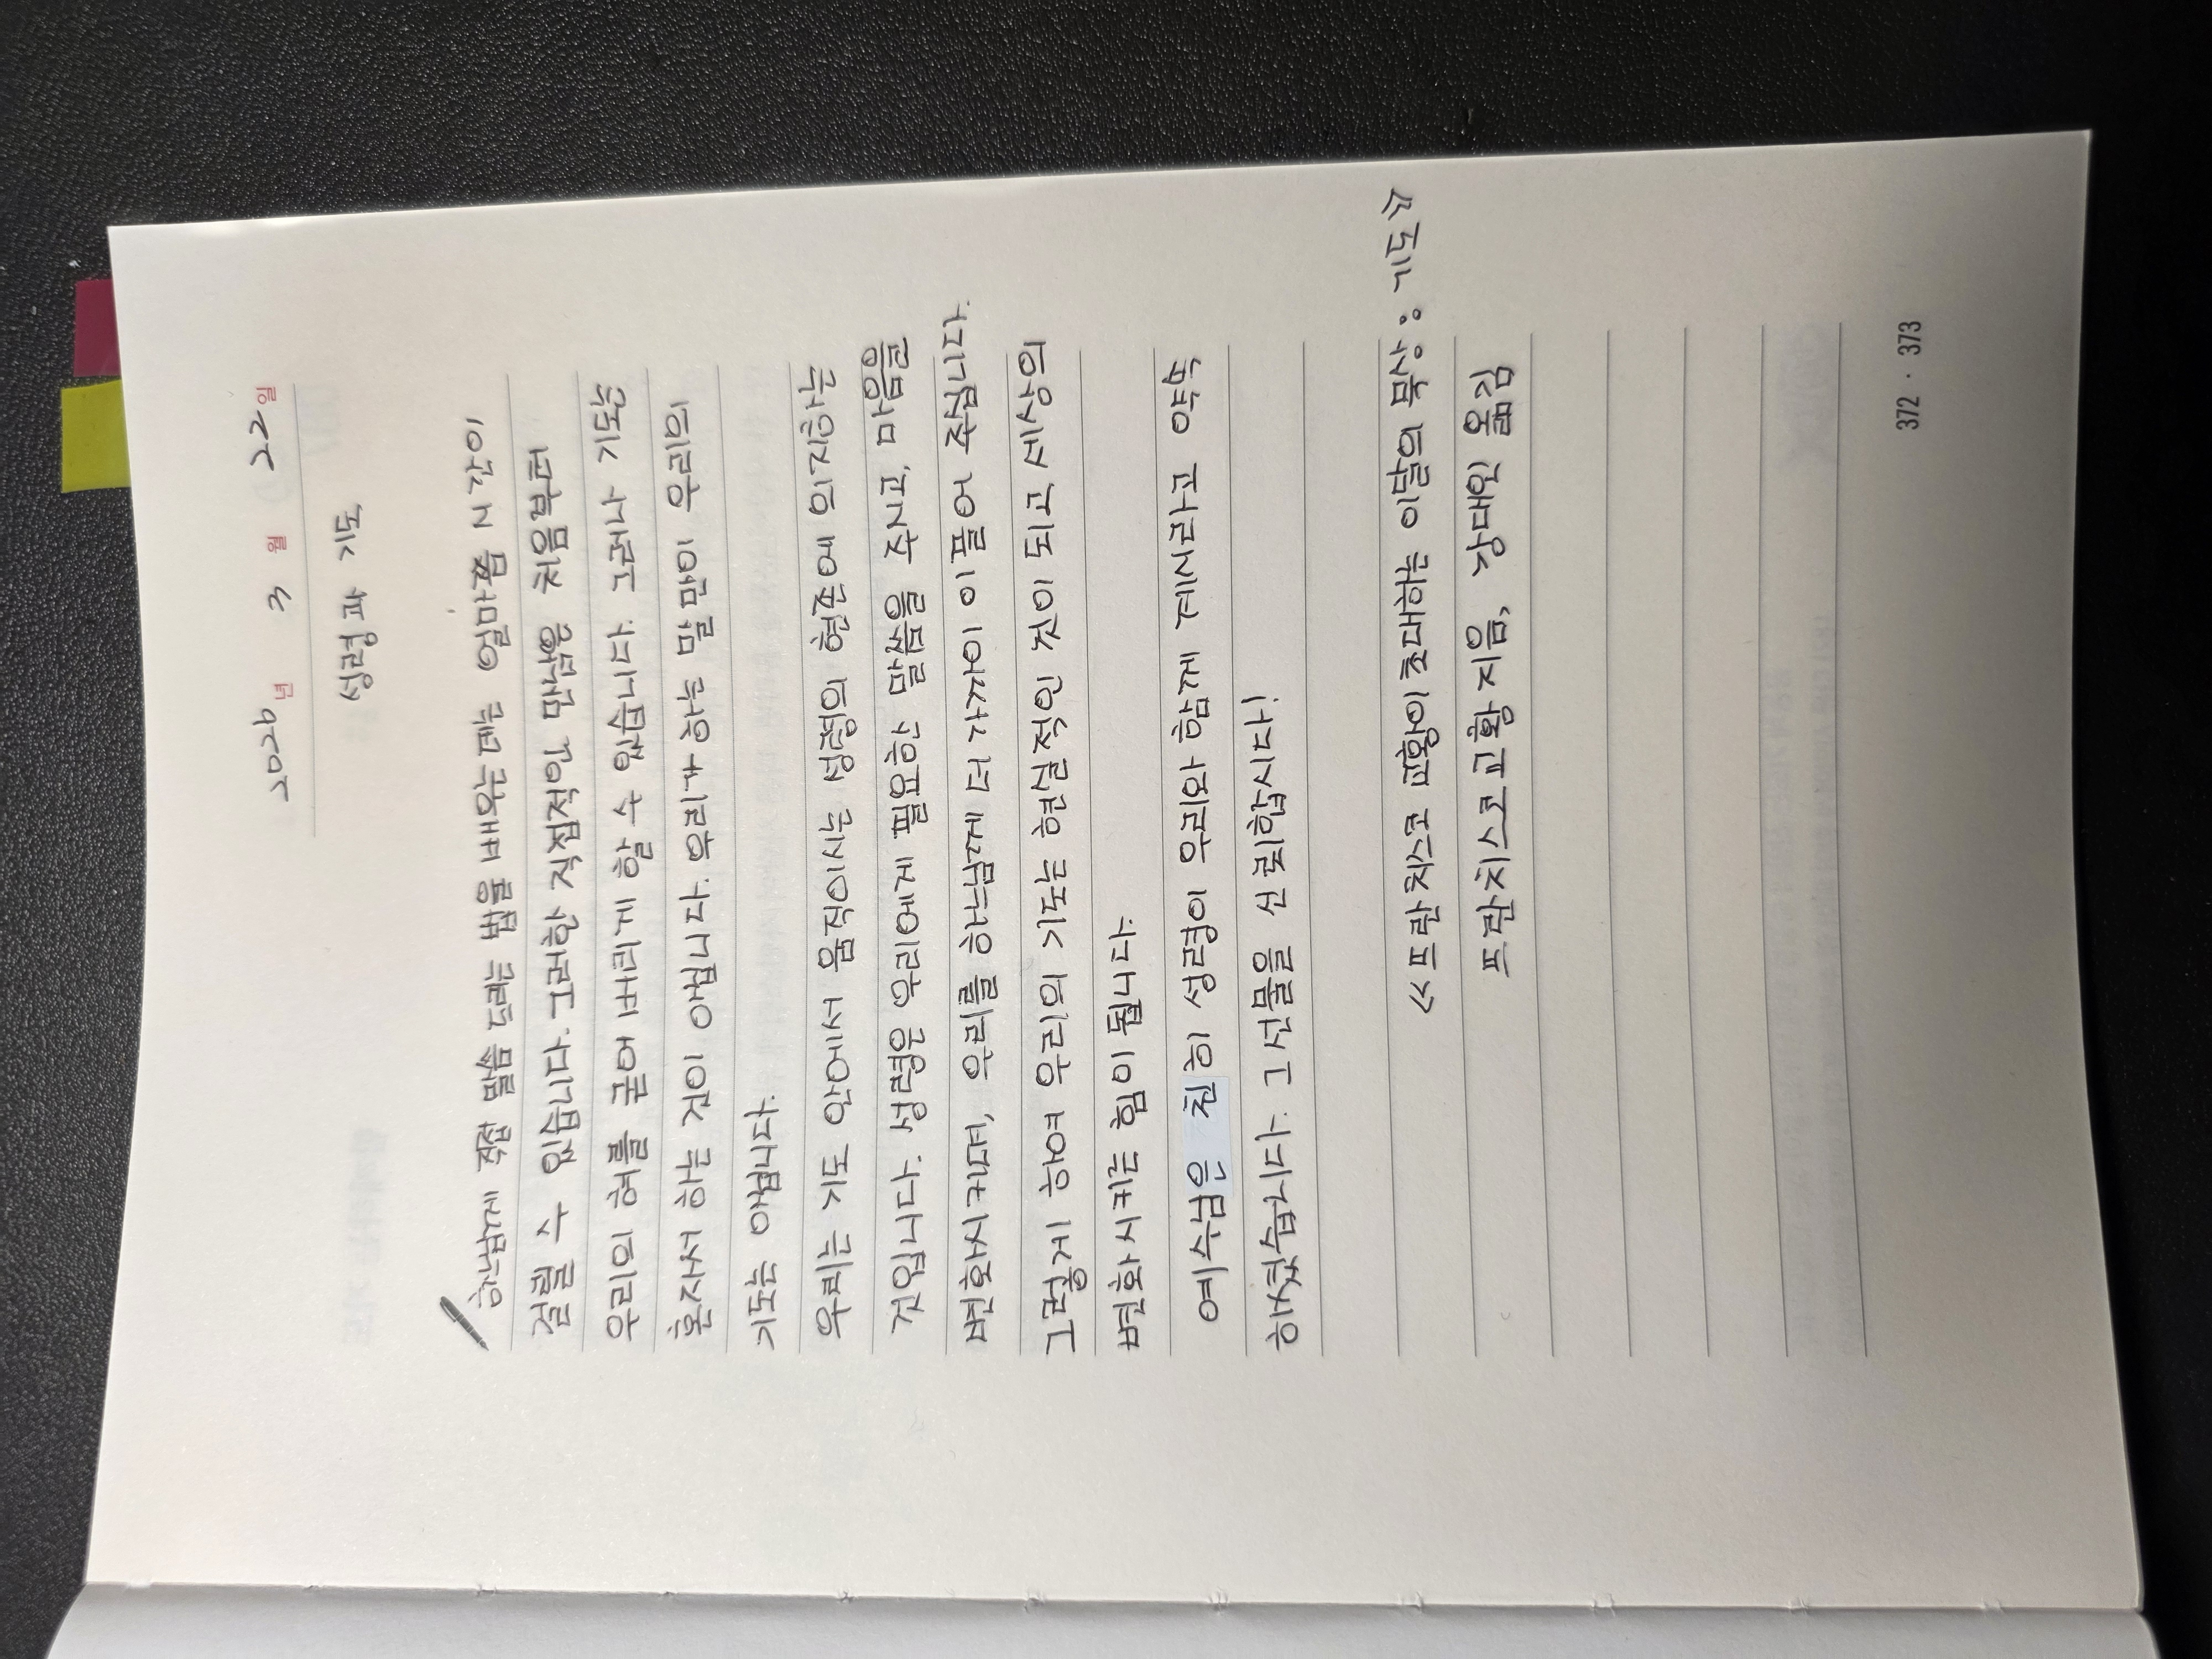 2026년 3월 22일
성령과 기도
하느님께 직접 말씀 드리는 법을 배우는 데는 얼마쯤 시간이
걸릴 수 있습니다. 그러한 직접적인 만남은 처음부터
우리의 혀를 굳어 버리게 할 수 있습니다. 그러나 기도는
혼자서 하는 것이 아닙니다. 우리가 하는 말만이 우리의
기도는 아닙니다.
우리는 기도 안에서 움직이시는 성령의 현존에 의지하는
것입니다. 성령은 우리에게 필요한 말씀을 주시고, 마음을
변화시키며, 우리를 하느님께 더 가까이 이끌어 주십니다.
그렇게 하여 우리의 기도는 현실적인 것이 되고 세상의
변화시키는 힘이 됩니다.
예수님은 친히 성령이 우리와 함께 계시라고 약속
하셨습니다. 그 선물을 신뢰합시다!
《프란치스코 교황이 초대하는 이달의 묵상: 기도》
프란치스코 교황 지음, 강대인 옮김
372 · 373